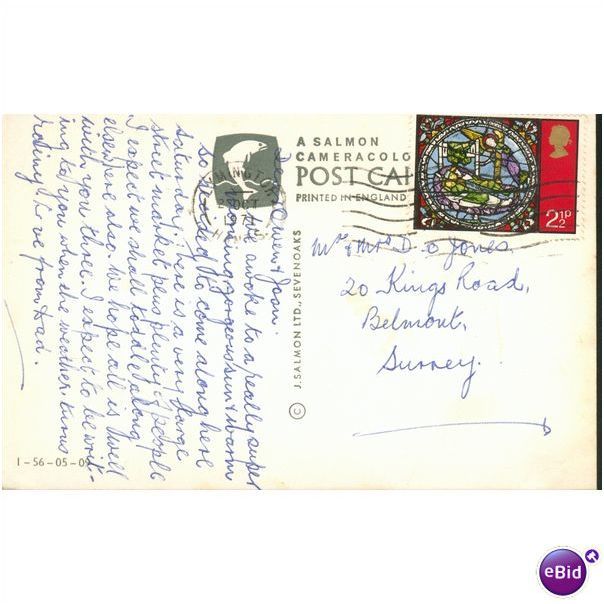 A SALMON
CAMERACOLO
POST CAR
PRINTED IN ENGLAND
2½P
OCT
© J. SALMON LTD., SEVENOAKS
1-56-05-0
Dear Gwen & Joan.
We awoke to a really super
morning, gorgeous sun & warm
so decided to come along here
Saturday, there is a very large
street market plus plenty of people
I expect we shall toddle along
elsewhere also. We hope all is well
with you three. I expect to be writ-
ing to you when the weather turns
Love from
Mr & Mrs D. O Jones.
20 Kings Road,
Belmont,
Surrey.
eBid